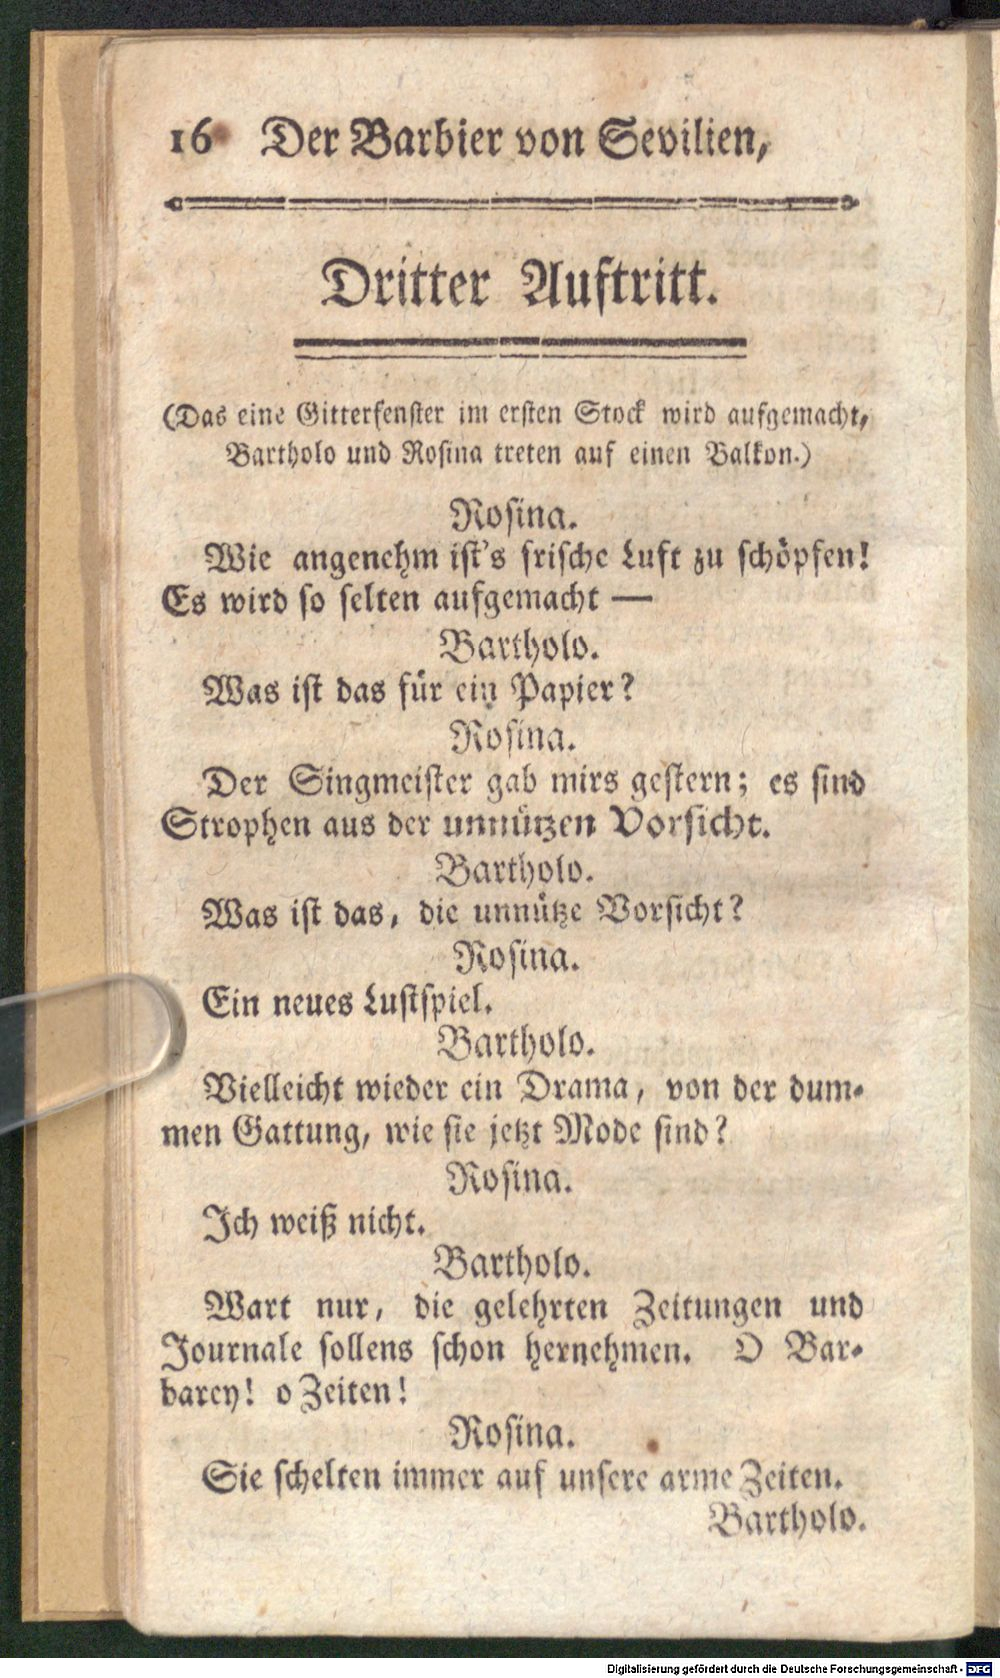 16 Der Barbier von Sevilien,
Dritter Auftritt.
(Das eine Gitterfenster im ersten Stock wird aufgemacht,
Bartholo und Rosina treten auf einen Balkon.)
Rosina.
Wie angenehm ist's frische Luft zu schöpfen!
Es wird so selten aufgemacht —
Bartholo.
Was ist das für ein Papier?
Rosina.
Der Singmeister gab mirs gestern; es sind
Strophen aus der unnützen Vorsicht.
Bartholo.
Was ist das, die unnütze Vorsicht?
Rosina.
Ein neues Lustspiel.
Bartholo.
Vielleicht wieder ein Drama, von der dum-
men Gattung, wie sie jetzt Mode sind?
Rosina.
Ich weiß nicht.
Bartholo.
Wart nur, die gelehrten Zeitungen und
Journale sollens schon hernehmen. O Bar-
barey! o Zeiten!
Rosina.
Sie schelten immer auf unsere arme Zeiten.
Bartholo.
Digitalisierung gefördert durch die Deutsche Forschungsgemeinschaft - DFG